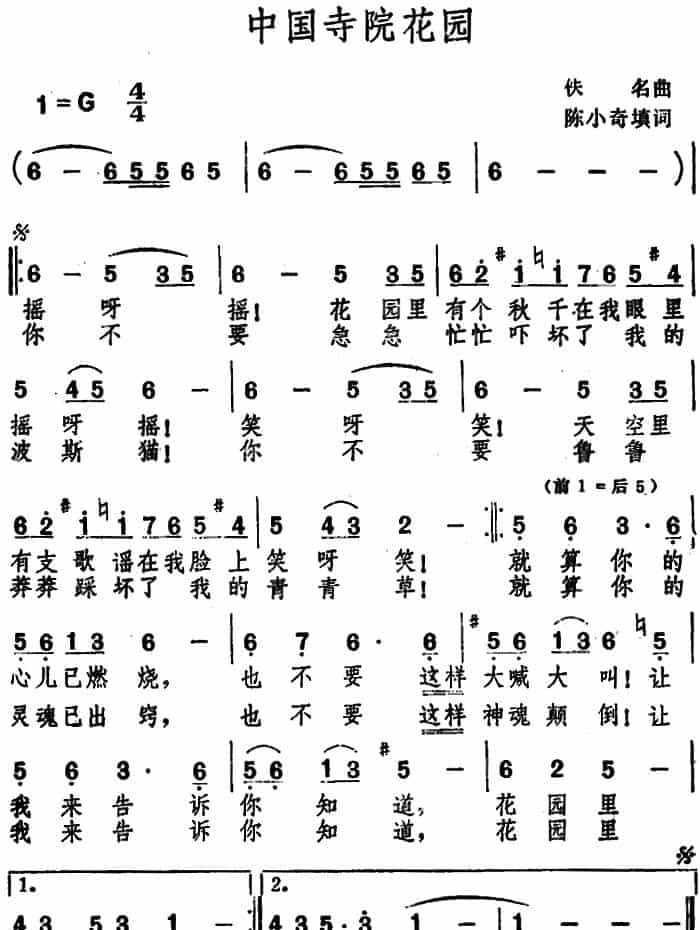 中国寺院花园
1=G 4/4
佚 名曲
陈小奇填词
(6 - 6 5 5 6 5 | 6 - 6 5 5 6 5 | 6 - - - )|
6 - 5 3 5 | 6 - 5 3 5 | 6 2 #1 ♮1 7 6 5 #4
摇 呀 摇! 花 园里 有个 秋 千在我眼里
你 不 要 急 急 忙忙 吓 坏了 我的
5 4 5 6 - | 6 - 5 3 5 | 6 - 5 3 5
摇 呀 摇! 笑 呀 笑! 天 空里
波 斯 猫! 你 不 要 鲁 鲁
(前1=后5)
6 2 #1 ♮1 7 6 5 #4 | 5 4 3 2 - :| 5 6 3· 6
有支 歌 谣在我脸上 笑 呀 笑! 就 算 你 的
莽莽 踩 坏了 我的 青 青 草! 就 算 你 的
5 6 1 3 6 - | 6 7 6· 6 | #5 6 1 3 6 ♮5
心儿已燃 烧, 也 不 要 这样 大喊 大 叫! 让
灵魂已出 窍, 也 不 要 这样 神魂 颠 倒! 让
5 6 3· 6 | 5 6 1 3 #5 - | 6 2 5 -
我 来 告 诉 你 知 道, 花 园 里
我 来 告 诉 你 知 道, 花 园 里
1. 2.
4 3 5 3 1 - :| 4 3 5· 3 1 - | 1 - - -